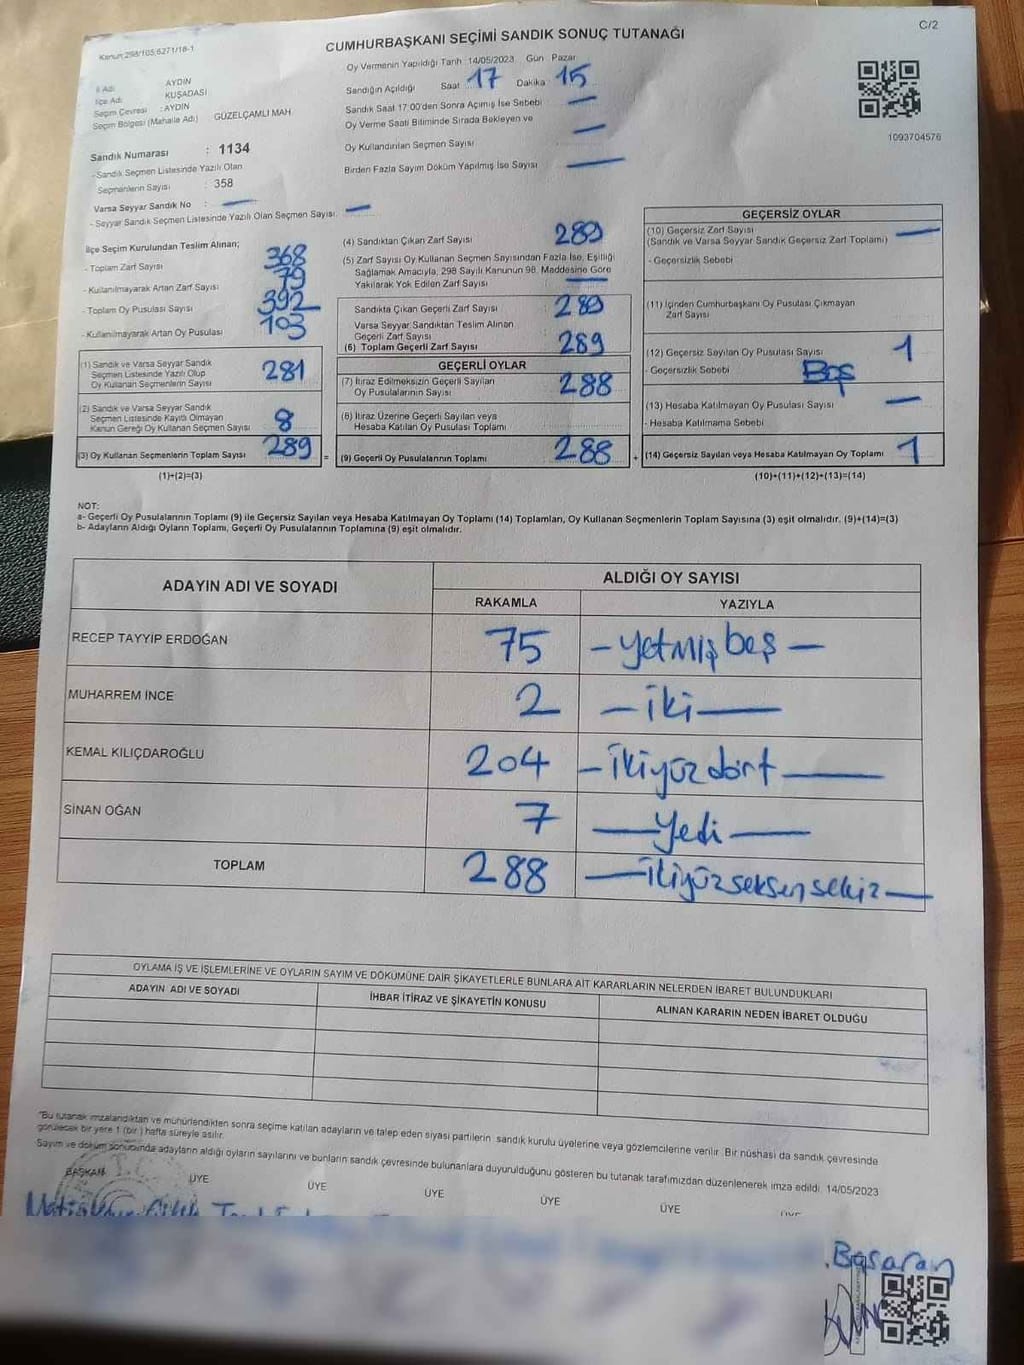 C/2
Kanun:298/105,6271/18-1
CUMHURBAŞKANI SEÇİMİ SANDIK SONUÇ TUTANAĞI
İl Adı AYDIN
İlçe Adı KUŞADASI
Seçim Çevresi : AYDIN
Seçim Bölgesi (Mahalle Adı) GÜZELÇAMLI MAH
Sandık Numarası : 1134
- Sandık Seçmen Listesinde Yazılı Olan
Seçmenlerin Sayısı : 358
Varsa Seyyar Sandık No : —
- Seyyar Sandık Seçmen Listesinde Yazılı Olan Seçmen Sayısı: —
Oy Vermenin Yapıldığı Tarih :14/05/2023 Gün Pazar
Sandığın Açıldığı Saat 17 Dakika 15
Sandık Saat 17.00'den Sonra Açılmış İse Sebebi —
Oy Verme Saati Bitiminde Sırada Bekleyen ve
Oy Kullandırılan Seçmen Sayısı —
Birden Fazla Sayım Döküm Yapılmış İse Sayısı —
1093704576
İlçe Seçim Kurulundan Teslim Alınan;
- Toplam Zarf Sayısı 368
- Kullanılmayarak Artan Zarf Sayısı 79
- Toplam Oy Pusulası Sayısı 392
- Kullanılmayarak Artan Oy Pusulası 103
(1) Sandık ve Varsa Seyyar Sandık
Seçmen Listesinde Yazılı Olup
Oy Kullanan Seçmenlerin Sayısı 281
(2) Sandık ve Varsa Seyyar Sandık
Seçmen Listesinde Kayıtlı Olmayan
Kanun Gereği Oy Kullanan Seçmen Sayısı 8
(3) Oy Kullanan Seçmenlerin Toplam Sayısı 289
=
(1)+(2)=(3)
(4) Sandıktan Çıkan Zarf Sayısı 289
(5) Zarf Sayısı Oy Kullanan Seçmen Sayısından Fazla İse, Eşitliği
Sağlamak Amacıyla, 298 Sayılı Kanunun 98. Maddesine Göre
Yakılarak Yok Edilen Zarf Sayısı —
Sandıkta Çıkan Geçerli Zarf Sayısı 289
Varsa Seyyar Sandıktan Teslim Alınan
Geçerli Zarf Sayısı
(6) Toplam Geçerli Zarf Sayısı 289
GEÇERLİ OYLAR
(7) İtiraz Edilmeksizin Geçerli Sayılan
Oy Pusulalarının Sayısı 288
(8) İtiraz Üzerine Geçerli Sayılan veya
Hesaba Katılan Oy Pusulası Toplamı
(9) Geçerli Oy Pusulalarının Toplamı 288
+
GEÇERSİZ OYLAR
(10) Geçersiz Zarf Sayısı —
(Sandık ve Varsa Seyyar Sandık Geçersiz Zarf Toplamı)
- Geçersizlik Sebebi
(11) İçinden Cumhurbaşkanı Oy Pusulası Çıkmayan
Zarf Sayısı
(12) Geçersiz Sayılan Oy Pusulası Sayısı 1
- Geçersizlik Sebebi Boş
(13) Hesaba Katılmayan Oy Pusulası Sayısı —
- Hesaba Katılmama Sebebi
(14) Geçersiz Sayılan veya Hesaba Katılmayan Oy Toplamı 1
(10)+(11)+(12)+(13)=(14)
NOT:
a- Geçerli Oy Pusulalarının Toplamı (9) ile Geçersiz Sayılan veya Hesaba Katılmayan Oy Toplamı (14) Toplamları, Oy Kullanan Seçmenlerin Toplam Sayısına (3) eşit olmalıdır. (9)+(14)=(3)
b- Adayların Aldığı Oyların Toplamı, Geçerli Oy Pusulalarının Toplamına (9) eşit olmalıdır.
ADAYIN ADI VE SOYADI ALDIĞI OY SAYISI
RAKAMLA YAZIYLA
RECEP TAYYİP ERDOĞAN 75 — yetmiş beş —
MUHARREM İNCE 2 — iki —
KEMAL KILIÇDAROĞLU 204 — ikiyüz dört —
SİNAN OĞAN 7 — yedi —
TOPLAM 288 — ikiyüzseksen sekiz —
OYLAMA İŞ VE İŞLEMLERİNE VE OYLARIN SAYIM VE DÖKÜMÜNE DAİR ŞİKAYETLERLE BUNLARA AİT KARARLARIN NELERDEN İBARET BULUNDUKLARI
ADAYIN ADI VE SOYADI İHBAR İTİRAZ VE ŞİKAYETİN KONUSU ALINAN KARARIN NEDEN İBARET OLDUĞU
"Bu tutanak imzalandıktan ve mühürlendikten sonra seçime katılan adayların ve talep eden siyasi partilerin sandık kurulu üyelerine veya gözlemcilerine verilir. Bir nüshası da sandık çevresinde
görülecek bir yere 1 (bir ) hafta süreyle asılır.
Sayım ve döküm sonucunda adayların aldığı oyların sayılarını ve bunların sandık çevresinde bulunanlara duyurulduğunu gösteren bu tutanak tarafımızdan düzenlenerek imza edildi. 14/05/2023
BAŞKAN ÜYE ÜYE ÜYE ÜYE ÜYE ÜYE
T.C.
Başaran